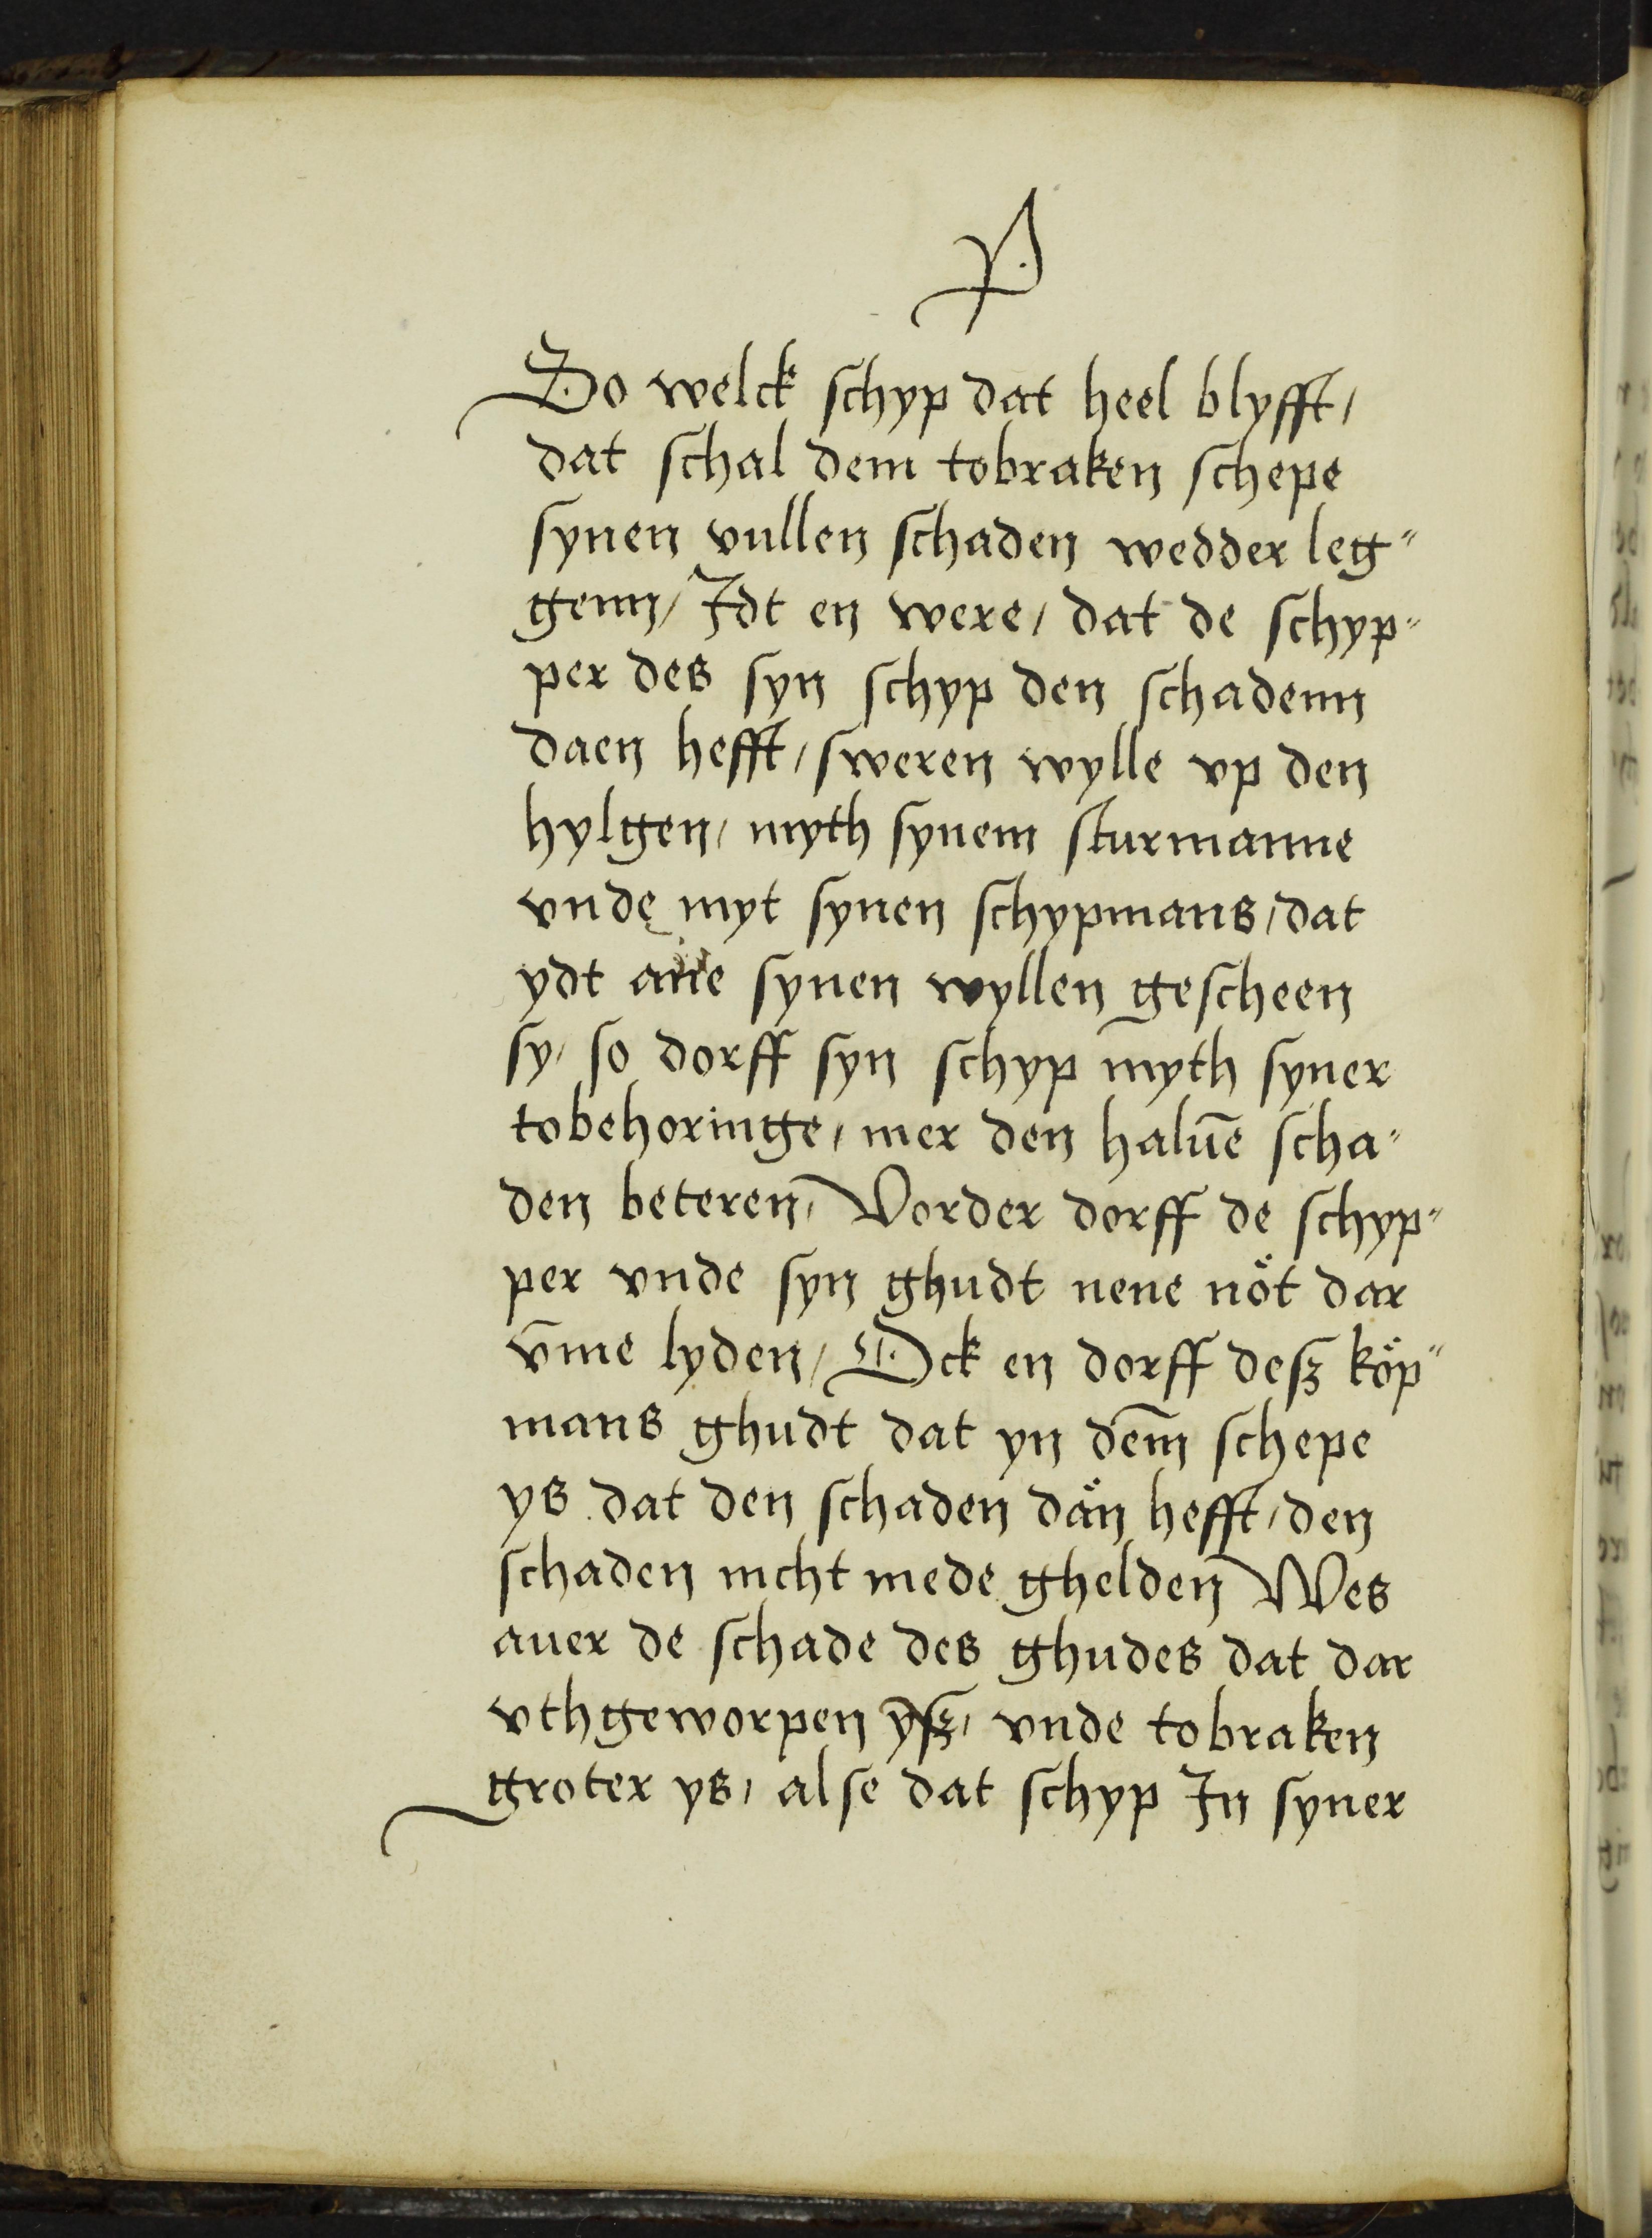 P.
So welck schyp dat heel blyfft/
dat schal dem tobraken schepe
synen vullen schaden wedder leg"
genn/ Jdt en were/ dat de schyp"
per des syn schyp den schadenn
daen hefft/ sweren wylle vp den
hylgen/ myth synem sturmanne
vnde myt synen schypmans/ dat
ydt ane synen wyllen gescheen
sy/ so dorff syn schyp myth syner
tobehoringe/ mer den haluē scha"
den beteren/ Vorder dorff de schyp"
per vnde syn ghudt nene nöt dar
v̄me lyden/ Ock en dorff desz köp"
mans ghudt dat yn dem̄ schepe
ys dat den schaden dän hefft/ den
schaden nicht mede ghelden Wes
auer de schade des ghudes dat dar
vthgeworpen ysz/ vnde tobraken
groter ys/ alse dat schyp Jn syner